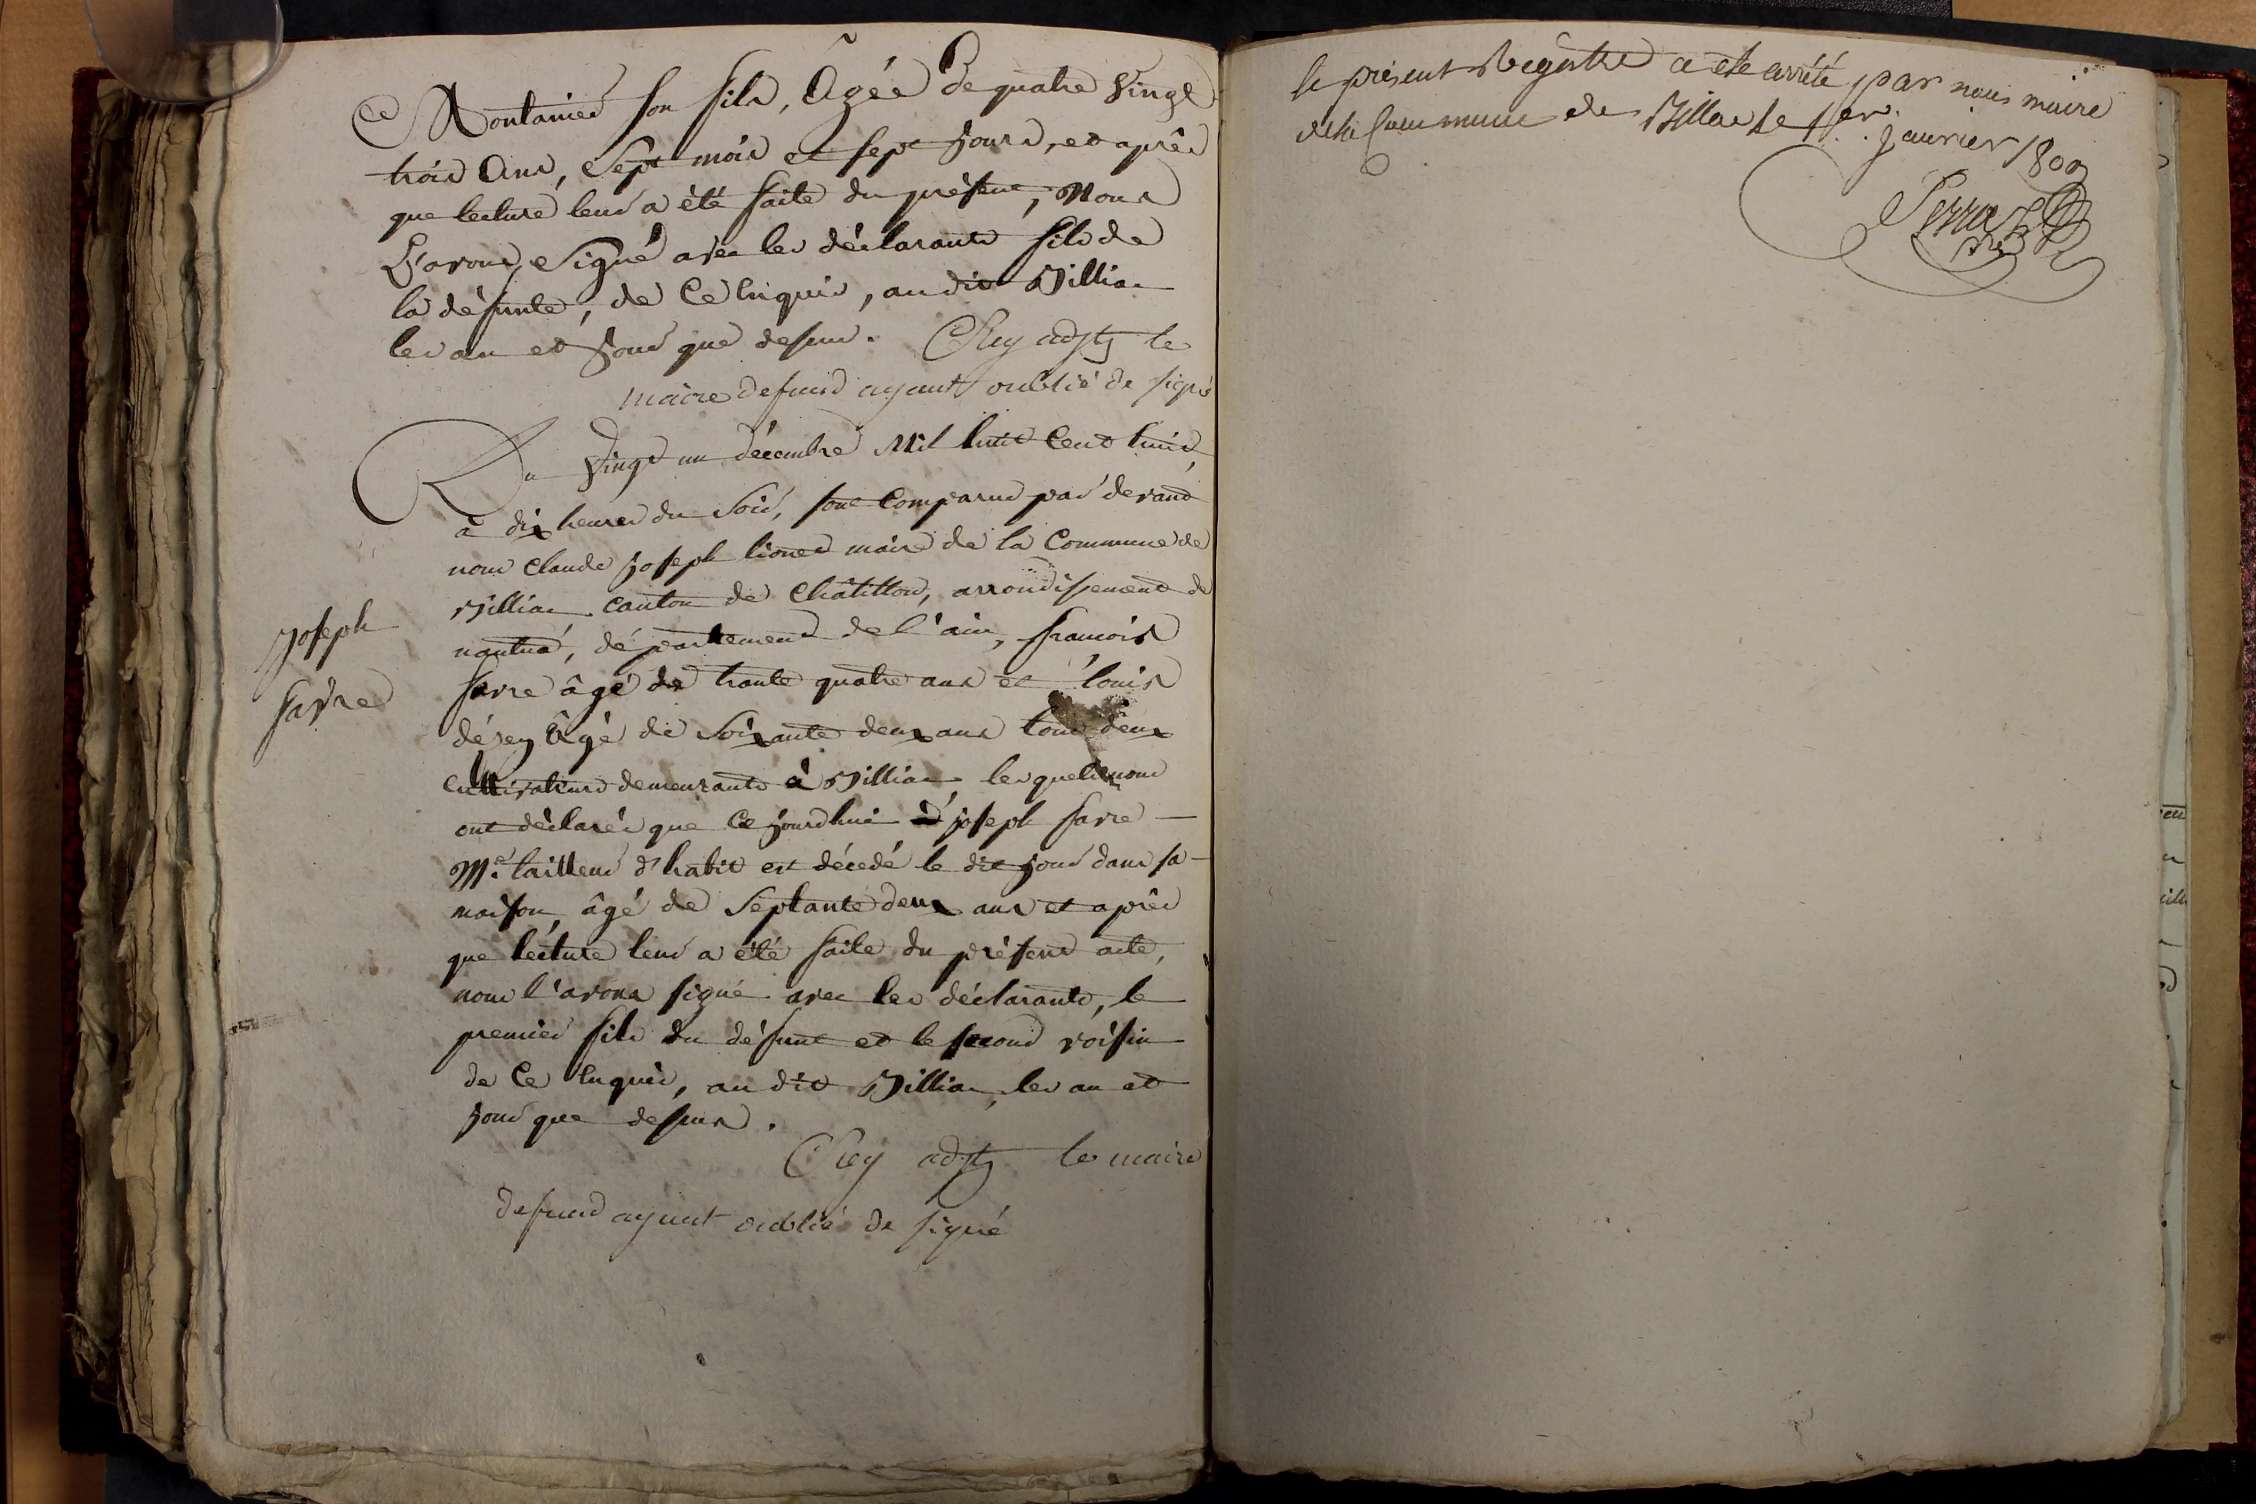 Montanier son fils, Agée de quatre vingt
trois Ans, Sept mois et sept jours, et après
que lecture leur a été faite du présent, Nous
L'avons Signé avec les déclarants fils de
la défunte, de Ce Enquis, au dit Villiac
les an et jour que dessus. Rey adjt le
maire defunt ayant oublié de signé
Du vingt un décembre Mil huit Cent huit,
à dix heures du Soir, sont Comparus par devant
nous claude joseph maire de la Commune de
Villiac canton de Châtillon, arrondissement de
nantua, département de l'ain, francois
favre âgé de trante quatre ans et louis
Agé de Soixante deux ans tous deux
cultivateurs demeurants à Villiac, lesquels nous
ont déclarés que Ce jourdhui joseph favre
joseph
favre
Me tailleur d'habit est décedé le dit jour dans sa
maison, âgé de Septante deux ans et après
que lecture leur a été faite du présent acte,
nous l'avons signé avec les déclarants, le
premier fils du défunt et le second voisin
de Ce Enquis, au dit Villiac, les an et
jour que dessus.
Rey adjt le maire
defunt ayant oublié de signé
le présent Registre a eté arrété par nous maire
de la Commune de Villac le 1er janvier 1809